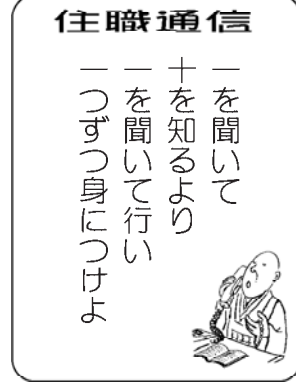 住職通信
一を聞いて
十を知るより
一を聞いて行い
一つずつ身につけよ